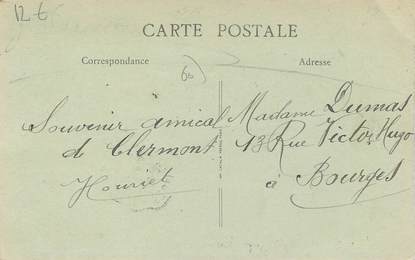 12 €
CARTE POSTALE
Correspondance
Adresse
Souvenir amical
de Clermont
Houriet
Madame Dumas
13 Rue Victor Hugo
à
Bourges